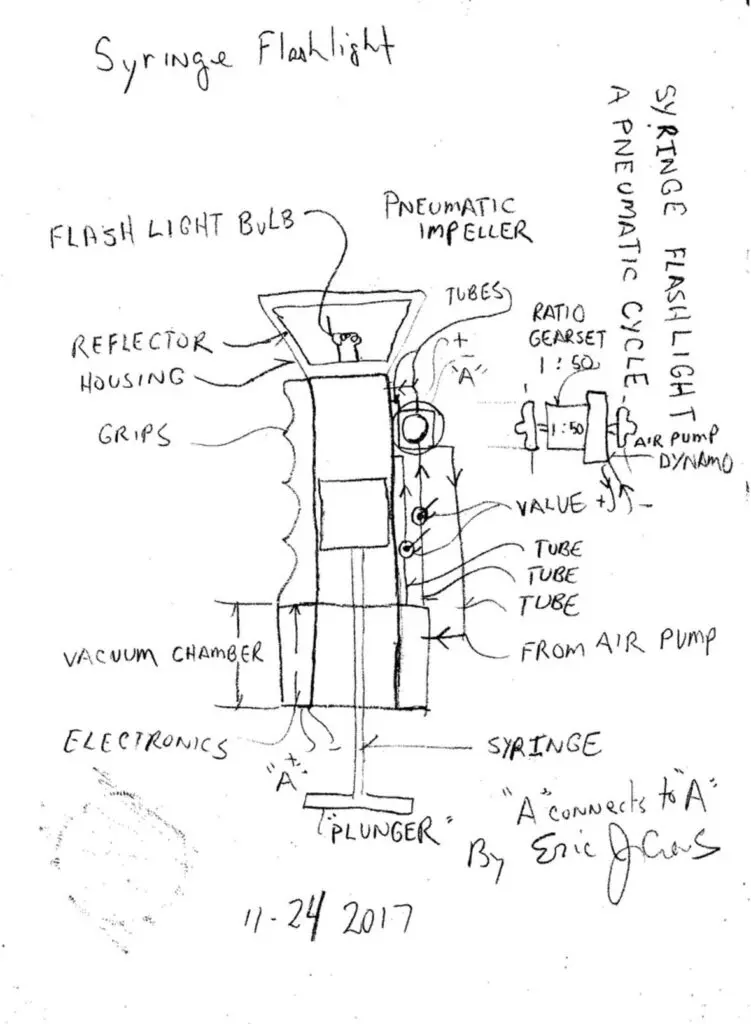 Syringe Flashlight
SYRINGE FLASHLIGHT
A PNEUMATIC CYCLE
FLASH LIGHT BULB
PNEUMATIC
IMPELLER
TUBES
RATIO
GEARSET
1:50
REFLECTOR
HOUSING
+
-
"A"
GRIPS
1:50
AIR PUMP
DYNAMO
VALUE
+
-
TUBE
TUBE
TUBE
VACUUM CHAMBER
FROM AIR PUMP
ELECTRONICS
+
-
"A"
SYRINGE
"PLUNGER"
"A" connects to "A"
By Eric J
11-24 2017